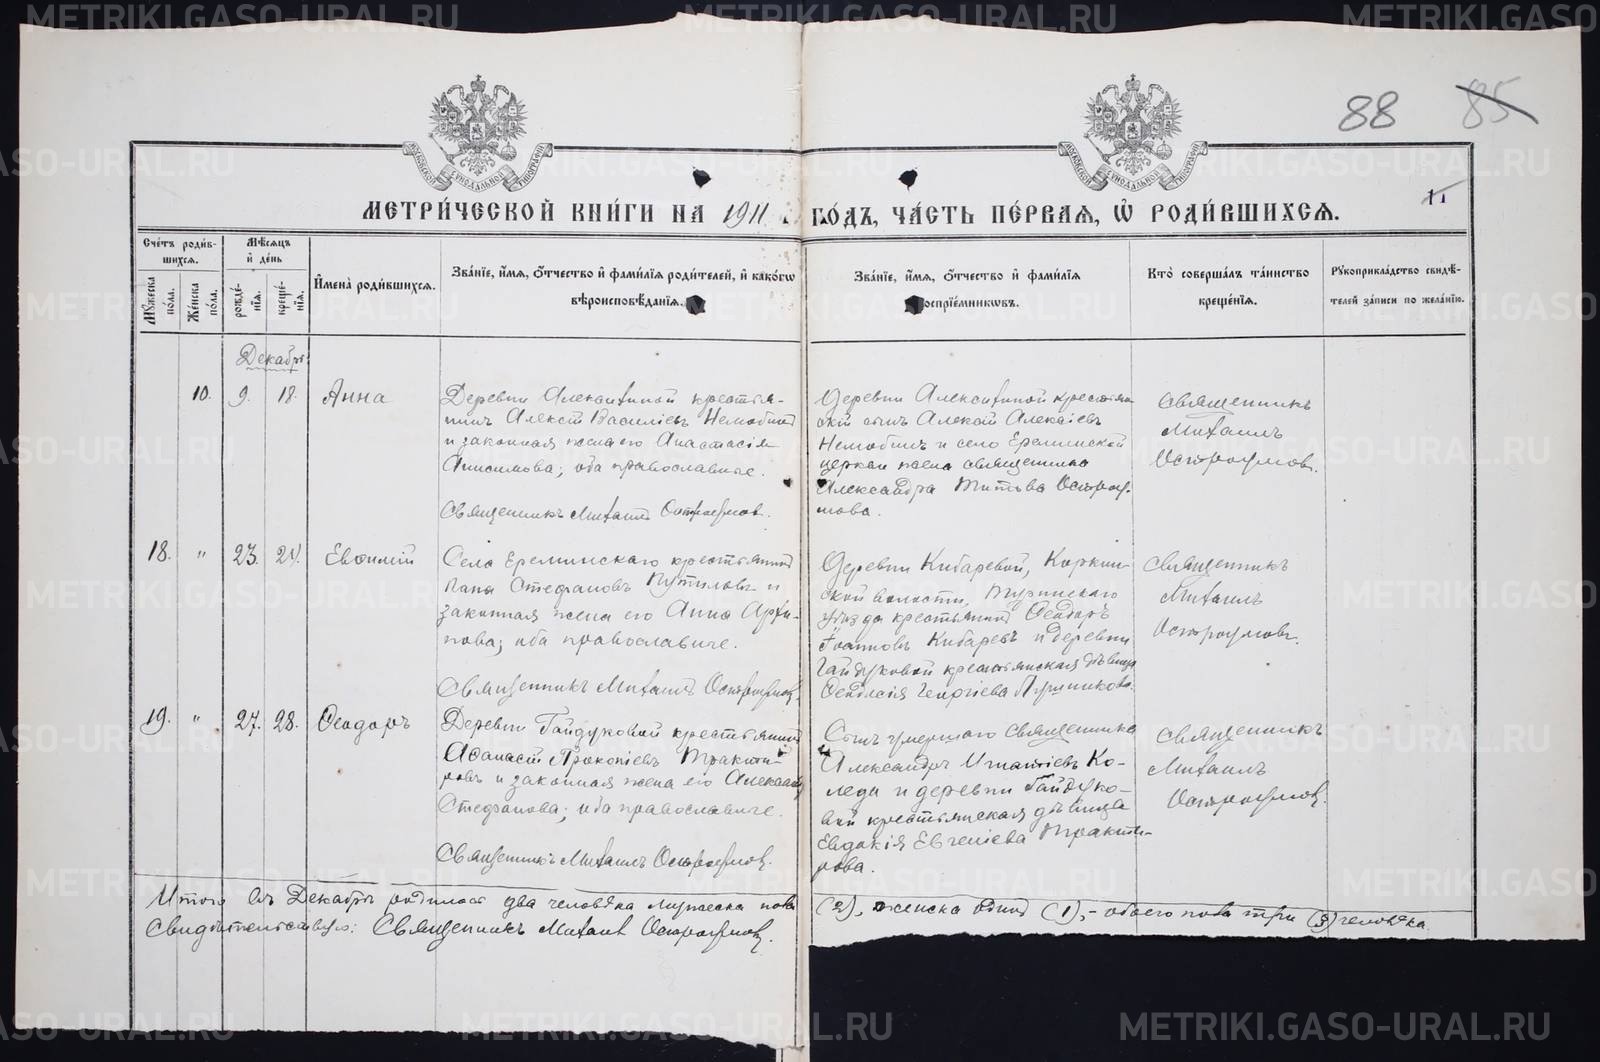 88 85
МЕТРИЧЕСКОЙ КНИГИ НА 1911 ГОДЪ, ЧАСТЬ ПЕРВАЯ, Ѿ РОДИВШИХСЯ.
Счетъ родившихся.
Мужеска пола.
Женска пола.
Мѣсяцъ и день
рожденія.
крещенія.
Имена родившихся.
Званіе, имя, отчество и фамилія родителей, и какого
вѣроисповѣданія.
Званіе, имя, отчество и фамилія
воспріемниковъ.
Кто совершалъ таинство
крещенія.
Рукоприкладство свидѣ-
телей записи по желанію.
Декабрь
10. 9. 18. Анна
Деревни крестья-
нинъ Алексѣй Василіевъ
и законная жена его Анастасія
Анисимова; оба православные.
Священникъ Михаилъ Остроумовъ.
Деревни крестьян-
скій сынъ Алексѣй Алексіевъ
и село Ереминской
церкви жена священника
Александра Титова Остроу-
мова.
Священникъ
Михаилъ
Остроумовъ.
18. " 23. 24. Евѳимій
Села Ереминскаго крестьянинъ
Стефановъ Путиловъ и
законная жена его Анна Архи-
пова; оба православные.
Священникъ Михаилъ Остроумовъ.
Деревни Кибаревой, Коркин-
ской волости, Туринскаго
уѣзда крестьянинъ Ѳеодоръ
Іоанновъ Кибаревъ и деревни
Гайдуковой крестьянская дѣвица
Георгіева
Священникъ
Михаилъ
Остроумовъ.
19. " 27. 28. Ѳеодоръ
Деревни Гайдуковой крестьянинъ
Аѳанасій Прокопіевъ Тракти-
ровъ и законная жена его Александра
Стефанова; оба православные.
Священникъ Михаилъ Остроумовъ.
Сынъ умершаго священника
Александръ Игнатіевъ Ко-
леда и деревни Гайдуко-
вой крестьянская дѣвица
Евдокія Евгеніева Тракти-
рова.
Священникъ
Михаилъ
Остроумовъ.
Итого въ Декабрѣ родилось два человѣка мужеска пола (2), женска одинъ (1), - обоего пола три (3) человѣка.
Свидѣтельствую: Священникъ Михаилъ Остроумовъ.
METRIKI.GASO-URAL.RU